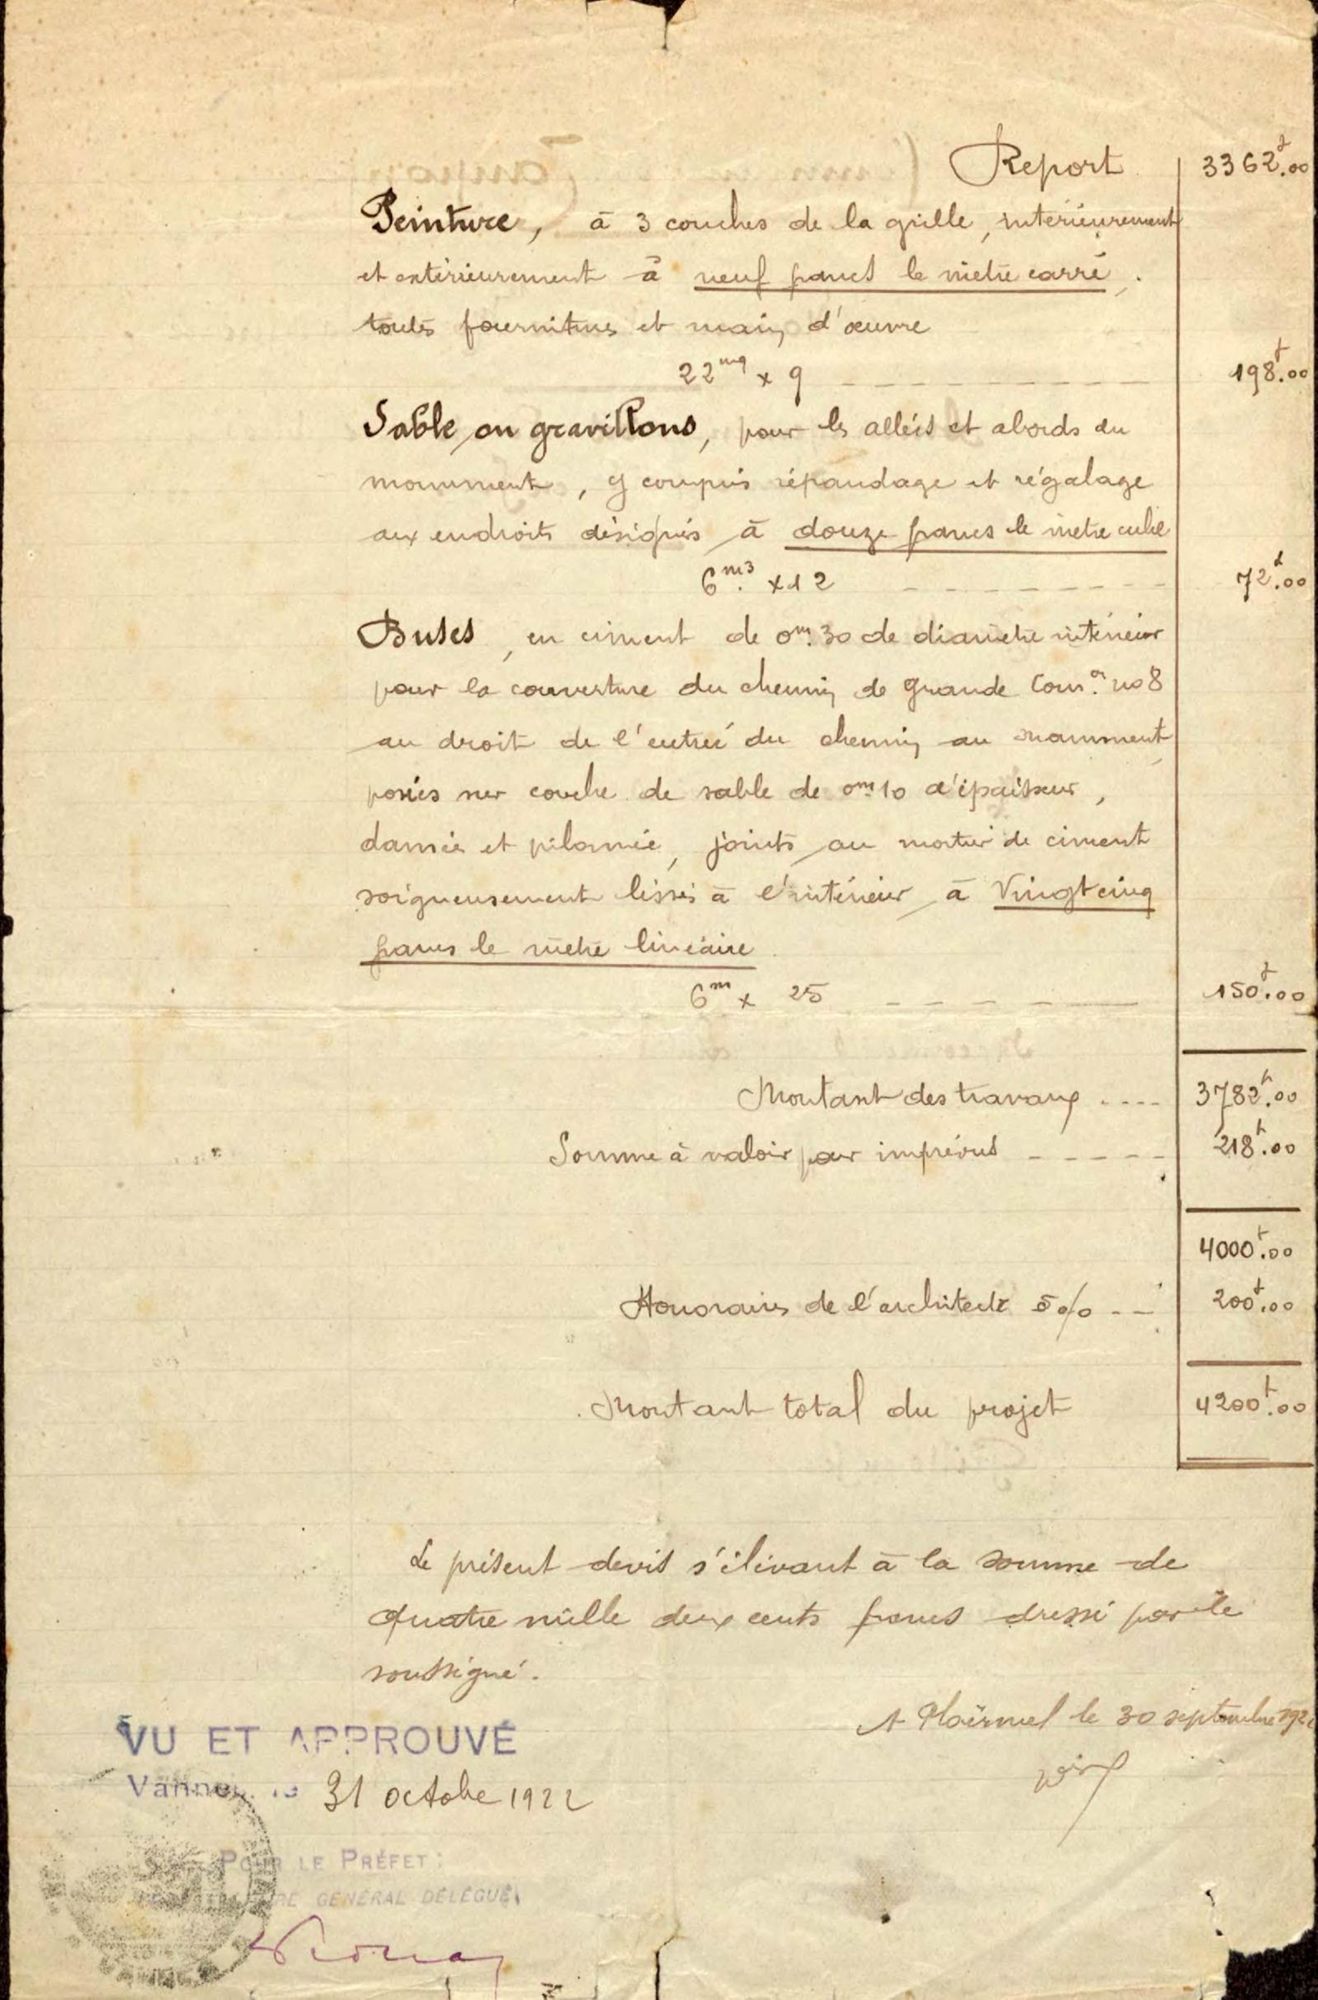 Report 3362f.00
Peinture, à 3 couches de la grille, intérieurement
et extérieurement à neuf francs le mètre carré,
toutes fournitures et main d'œuvre
22mq x 9 198f.00
Sable ou gravillons, pour les allées et abords du
monument, y compris répandage et régalage
aux endroits désignés à douze francs le mètre cube
6m3 x 12 72f.00
Buses, en ciment de 0m.30 de diamètre intérieur
pour la couverture du chemin de grande Com.on no 8
au droit de l'entrée du chemin au monument
posées sur couche de sable de 0m10 d'épaisseur,
damée et pilonnée, joints au mortier de ciment
soigneusement lissés à l'intérieur à Vingt cinq
francs le mètre linéaire
6m x 25 150f.00
Montant des travaux .... 3782f.00
Somme à valoir pour imprévus 218f.00
4000f.00
Honoraires de l'architecte 5% 200f.00
Montant total du projet 4200f.00
Le présent devis s'élevant à la somme de
quatre mille deux cents francs dressé par le
soussigné.
A Ploërmel le 30 septembre
VU ET APPROUVÉ
Vannes, le 31 octobre 1922
POUR LE PRÉFET:
GÉNÉRAL DÉLÉGUÉ